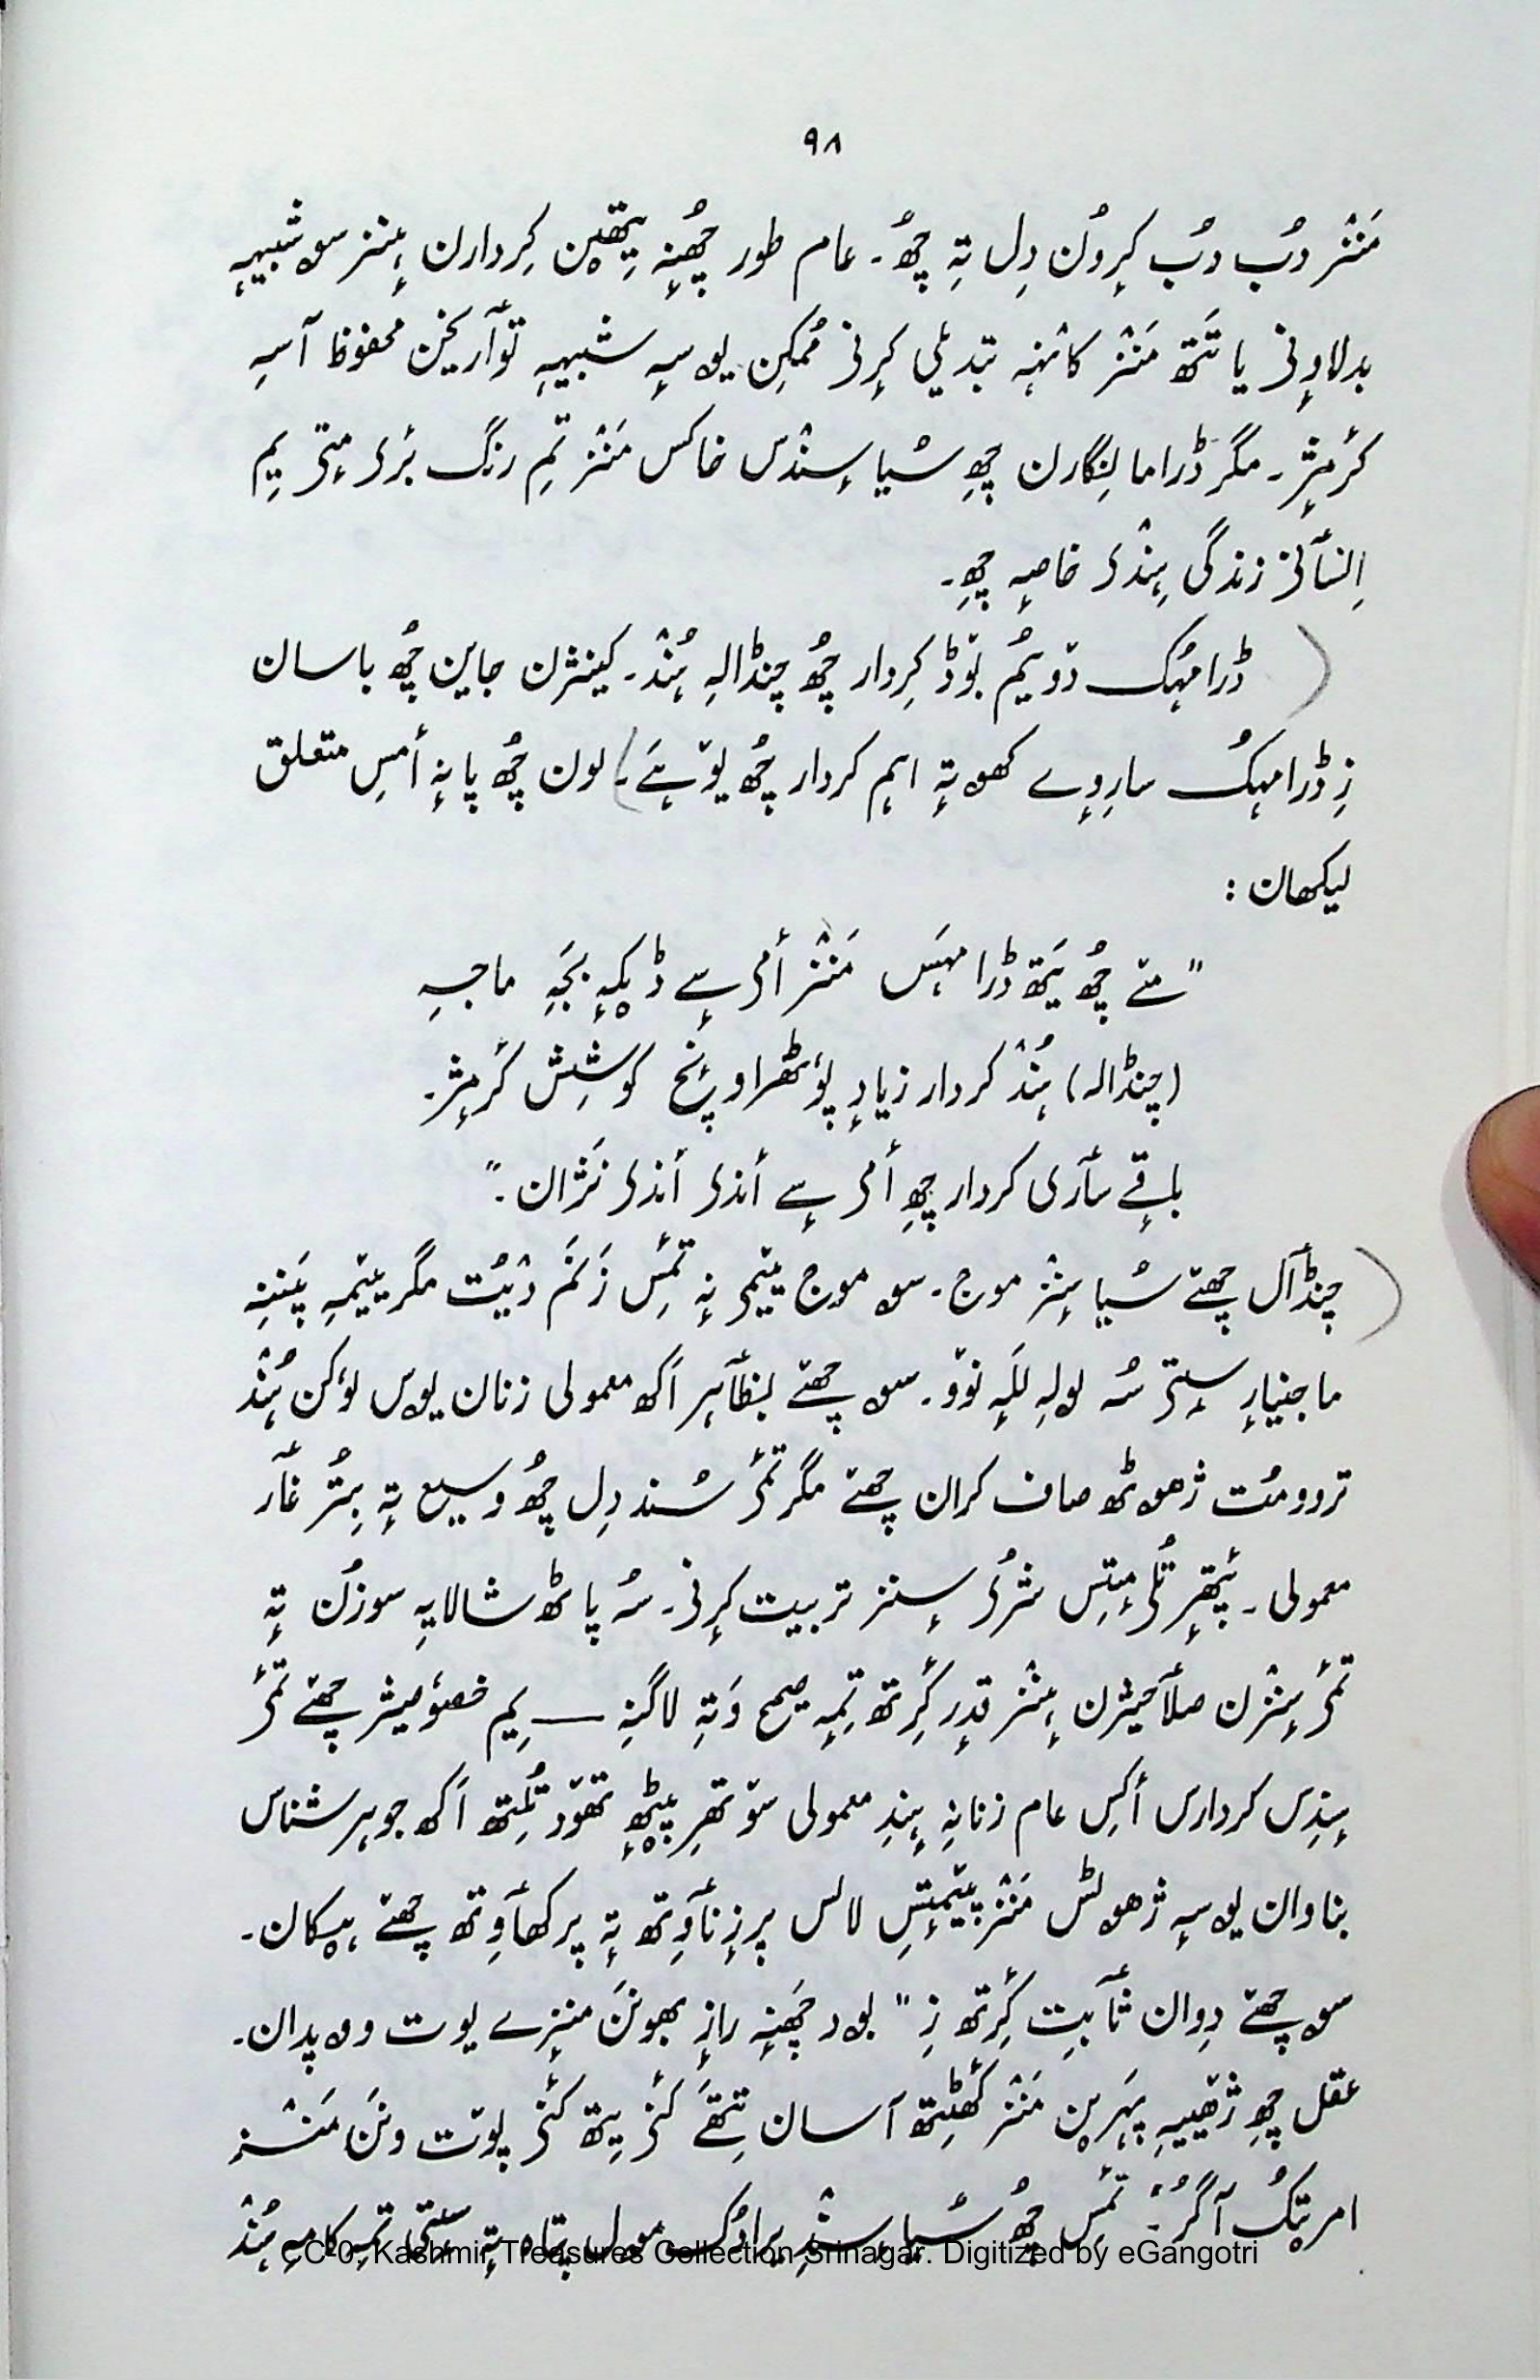 ۹۸
مَنٛز دُب دُب کرِوُن دِل تہِ چھُ۔ عام طور چھُنہٕ یِتھٮ۪ن کِردارن ہٕنز سوہ شبیہہ
بدلاوٕنۍ یا تَتھ مَنٛز کانٛہہ تبدیلی کرٕنۍ مُمکِن یوسہٕ شبیہہِ توٲریخن محفوظ آسہِ
کٔرمٕژ۔ مگر ڈراما نِگارن چھِ سُیا سٕنٛدس خاکس مَنٛز تِم رنگ برٔی مٕتۍ یِم
اِنسٲنۍ زندگی ہٕنٛدۍ خاصہٕ چھِ۔
ڈرامہُک دۆیُم بۆڈ کِردار چھُ چنڈالہِ ہُنٛد۔ کینٛژن جاین چھُ باسان
زِ ڈرامہٕکُ سارِوٕے کھوتہٕ اہم کردار چھُ یۆہَے۔ لون چھُ پانہٕ أمسِ متعلق
لیکھان :
"مےٚ چھُ یَتھ ڈرامہَس مَنٛز أمۍ سٕے ڈیکہٕ بجَہِ ماجہِ
(چنڈالہ) ہُنٛد کردار زیادٕ پۆٹھراونٕچ کوشِش کٔرمٕژ۔
باقٕے سٲری کردار چھِ أمۍ سٕے أندۍ أندۍ نَژان۔"
چنڈٲل چھےٚ سُیا سٕنٛز موج۔ سوہ موج ییٚمۍ نہٕ تٔمِس زَنَم دیُت مگر ییٚمہِ پَننِہِ
ماجنیارٕ سٟتۍ سُہ لولہِ لَلہٕ نوٚو۔ سوہ چھےٚ بظٲہر اَکھ معمولی زنان یوس لۅکن ہُنٛد
ترووُمُت ژھوٹھ صاف کران چھےٚ مگر تٔمۍ سُند دِل چھُ وسیع تہٕ بیٚتُر غٲر
معمولی۔ پٔتھرِ تُلۍ مٕتِس شُرۍ سٕنز تربیت کرٕنۍ۔ سُہ پاٹھ شالایہِ سوزُن تہٕ
تٔمۍ سٕنٛزن صلٲحیژن ہٕنٛز قدٕر کٔرِتھ تِمہٕ صحیح وَتہِ لاگنہِ — یِم خصوٗصیژ چھےٚ تٔمۍ
ہٕنٛدِس کردارس أکِس عام زنانہٕ ہٕندِ معمولی سۆتھرِ پیٚٹھٕ تھوٚد تُلِتھ اَکھ جوہر شناس
بناوان یوسہٕ ژھوٹس مَنٛز پیٚمٕتِس لالس پرزٕنٲوِتھ تہٕ پرکھٲوِتھ چھےٚ ہیٚکان۔
سوہ چھےٚ دِوان ثٲبِت کٔرِتھ زِ "بود چھَنہٕ رازٕ بھونَن منٛزٕے یوت ووہ پدان۔
عقل چھِ ژھیٚیہِ پہَرٮ۪ن مَنٛز گَٹھِتھ آسان تِتھَے کٔنۍ یِتھ کٔنۍ پوٚت ونَن مَنٛز
امریتُک آگُر" تٔمِس چھُ سُیا سٕنٛدِ یرادُک مول پتاہ تہٕ سٟتی تمہِ کامہِ ہُنٛد
CC-0. Kashmir Treasures Collection Srinagar. Digitized by eGangotri